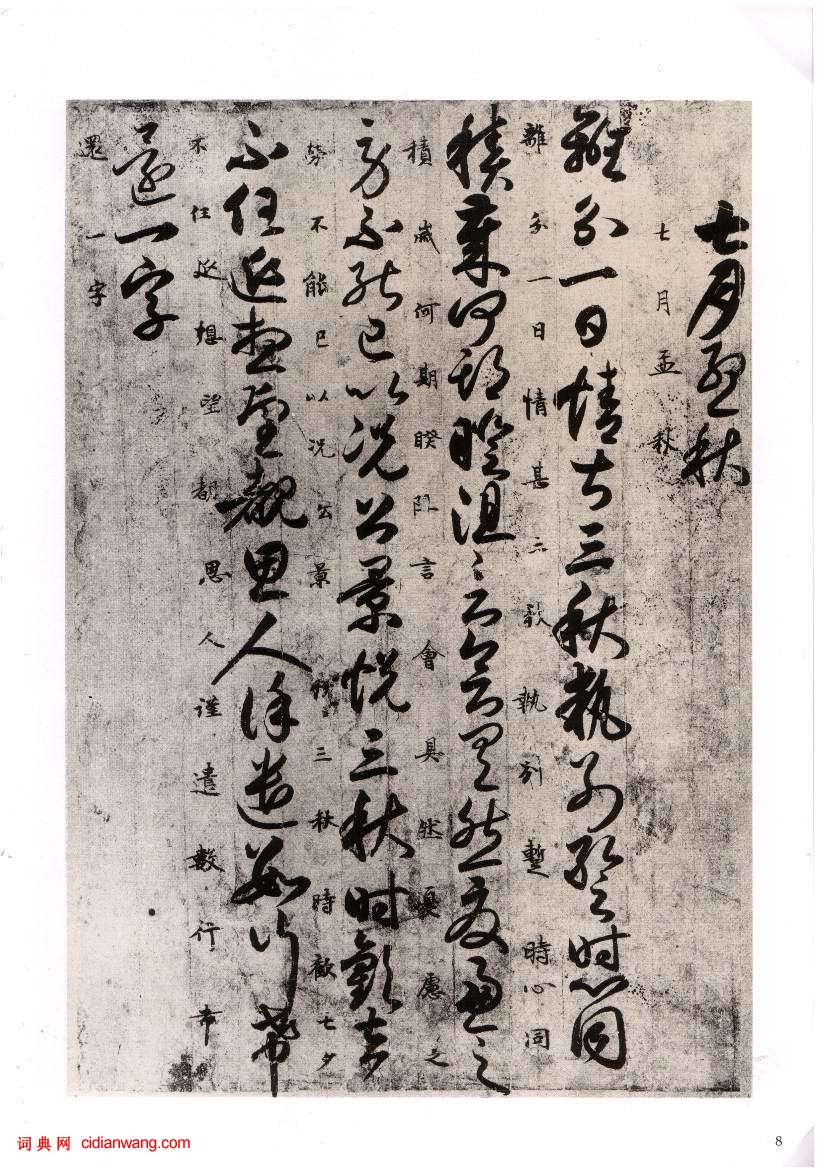 七月孟秋
七月孟秋
離分一日情甚三秋執別暫時心同
離分一日情甚三秋執別暫時心同
積歲何期暌阻言會具然憂慮之
積歲何期暌阻言會具然憂慮之
勞不能已以況公景悅三秋時歡七夕
勞不能已以況公景悅三秋時歡七夕
不任延想望都思人謹遣數行希
不任延想望都思人謹遣數行希
還一字
還一字
词典网 cidianwang.com
8